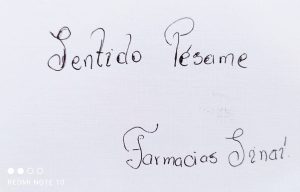 Sentido Pésame
Farmacias Sinaí.
REDMI NOTE 10